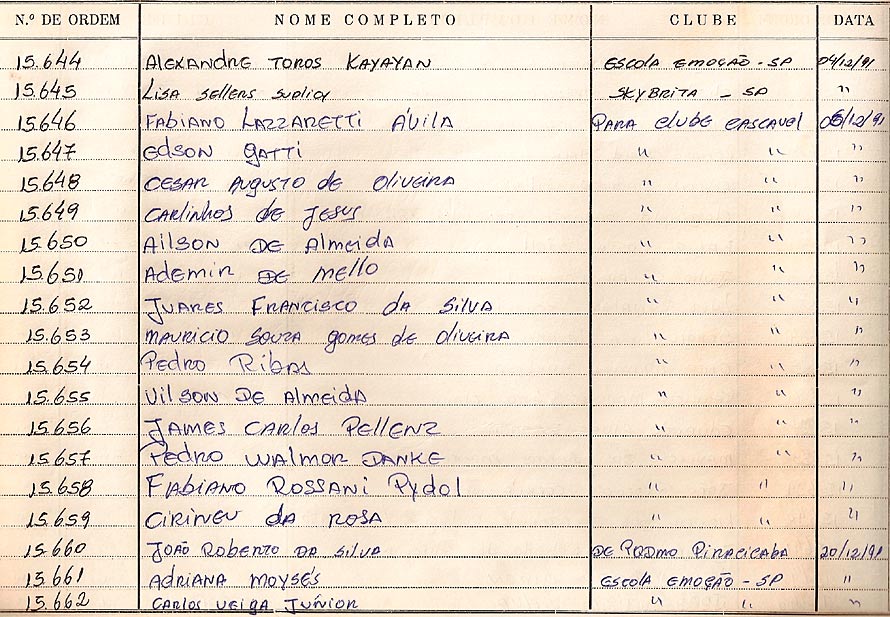 N.º DE ORDEM NOME COMPLETO CLUBE DATA
15.644 ALEXANDRE TOROS KAYAYAN ESCOLA EMOÇÃO - SP 04/12/91
15.645 LISA SELLERS SUPLICY SKYBRITA - SP "
15.646 FABIANO LAZZARETTI ÁVILA PARA CLUBE CASCAVEL 05/12/91
15.647 EDSON GATTI " " "
15.648 CESAR AUGUSTO DE OLIVEIRA " " "
15.649 CARLINHOS DE JESUS " " "
15.650 AILSON DE ALMEIDA " " "
15.651 ADEMIR DE MELLO " " "
15.652 JUARES FRANCISCO DA SILVA " " "
15.653 MAURICIO SOUZA GOMES DE OLIVEIRA " " "
15.654 PEDRO RIBAS " " "
15.655 VILSON DE ALMEIDA " " "
15.656 JAMES CARLOS PELLENZ " " "
15.657 PEDRO WALMOR DANKE " " "
15.658 FABIANO ROSSANI PYDOL " " "
15.659 CIRINEU DA ROSA " " "
15.660 JOÃO ROBERTO DA SILVA DE PIRACICABA 20/12/91
15.661 ADRIANA MOYSÉS ESCOLA EMOÇÃO - SP "
15.662 CARLOS VEIGA JUNIOR " " "